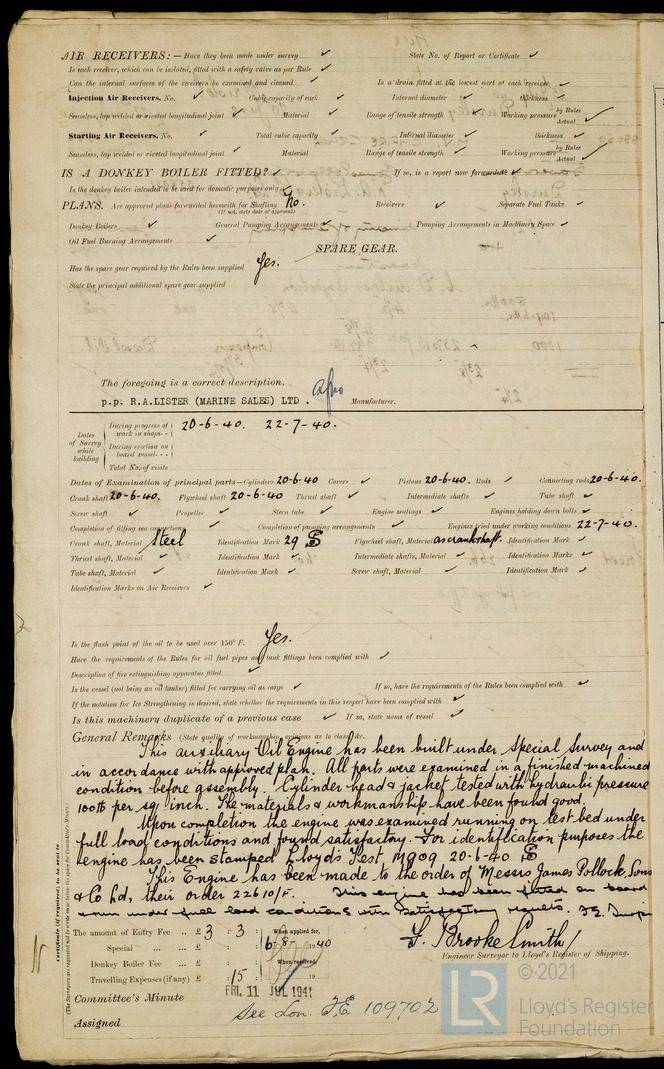 AIR RECEIVERS:— Have they been made under survey ✓ State No. of Report or Certificate ✓
Is each receiver, which can be isolated, fitted with a safety valve as per Rule ✓
Can the internal surfaces of the receivers be examined and cleaned ✓ Is a drain fitted at the lowest part of each receiver ✓
Injection Air Receivers, No. ✓ Cubic capacity of each ✓ Internal diameter ✓ thickness ✓
Seamless, lap welded or riveted longitudinal joint ✓ Material ✓ Range of tensile strength ✓ Working pressure by Rules Actual ✓
Starting Air Receivers, No. ✓ Total cubic capacity ✓ Internal diameter ✓ thickness ✓
Seamless, lap welded or riveted longitudinal joint ✓ Material Range of tensile strength ✓ Working pressure by Rules Actual ✓
IS A DONKEY BOILER FITTED? ✓ If so, is a report now forwarded ✓
Is the donkey boiler intended to be used for domestic purposes only ✓
PLANS. Are approved plans forwarded herewith for Shafting No. Receivers ✓ Separate Fuel Tanks ✓
(If not, state date of approval)
Donkey Boilers ✓ General Pumping Arrangements ✓ Pumping Arrangements in Machinery Space ✓
Oil Fuel Burning Arrangements ✓
SPARE GEAR.
Has the spare gear required by the Rules been supplied Yes.
State the principal additional spare gear supplied
The foregoing is a correct description.
p.p. R.A.LISTER (MARINE SALES) LTD. Manufacturer.
Dates of Survey while building
During progress of work in shops-- 20-6-40. 22-7-40.
During erection on board vessel---
Total No. of visits
Dates of Examination of principal parts—Cylinders 20-6-40 Covers ✓ Pistons 20-6-40. Rods ✓ Connecting rods 20-6-40.
Crank shaft 20-6-40. Flywheel shaft 20-6-40 Thrust shaft ✓ Intermediate shafts ✓ Tube shaft ✓
Screw shaft ✓ Propeller ✓ Stern tube ✓ Engine seatings ✓ Engines holding down bolts ✓
Completion of fitting sea connections ✓ Completion of pumping arrangements ✓ Engines tried under working conditions 22-7-40.
Crank shaft, Material Steel Identification Mark 29 Flywheel shaft, Material as crankshaft. Identification Mark ✓
Thrust shaft, Material ✓ Identification Mark ✓ Intermediate shafts, Material ✓ Identification Marks ✓
Tube shaft, Material ✓ Identification Mark ✓ Screw shaft, Material ✓ Identification Mark ✓
Identification Marks on Air Receivers ✓
Is the flash point of the oil to be used over 150° F. Yes.
Have the requirements of the Rules for oil fuel pipes and tank fittings been complied with ✓
Description of fire extinguishing apparatus fitted ✓
Is the vessel (not being an oil tanker) fitted for carrying oil as cargo ✓ If so, have the requirements of the Rules been complied with ✓
If the notation for Ice Strengthening is desired, state whether the requirements in this respect have been complied with ✓
Is this machinery duplicate of a previous case ✓ If so, state name of vessel ✓
General Remarks (State quality of workmanship, opinions as to class, &c.
This auxiliary Oil Engine has been built under Special Survey and
in accordance with approved plan. All parts were examined in a finished-machined
condition before assembly. Cylinder head & jacket tested with hydraulic pressure
100 lb per sq. inch. The materials & workmanship have been found good.
Upon completion the engine was examined running on test bed under
full load conditions and found satisfactory. For identification purposes the
engine has been stamped Lloyd's Test M909 20-6-40
This Engine has been made to the order of Messrs James Pollock, Sons
& Co Ltd, their order 22610/F. This engine has been fitted on board
& run under full load conditions with satisfactory results.
The amount of Entry Fee .. £ 3 : 3 : When applied for,
Special ... ... £ : : 6-8-1940
Donkey Boiler Fee ... £ : : When received,
Travelling Expenses (if any) £ : 15 : 19
F. Brooke Smith
Engineer Surveyor to Lloyd's Register of Shipping.
Committee's Minute FRI. 11 JUL 1941
See Lon. F.E. 109702
Assigned
© 2021
LR
Lloyd's Register
Foundation